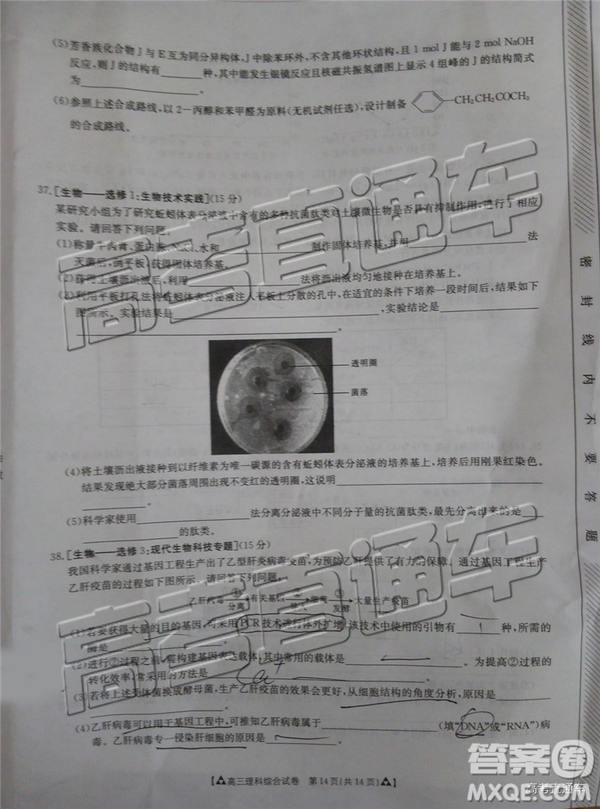 (5)芳香族化合物J与E互为同分异构体,J中除苯环外,不含其他环状结构,且1 mol J能与2 mol NaOH
反应,则J的结构有______种,其中能发生银镜反应且核磁共振氢谱图上显示4组峰的J的结构简式
为______。
(6)参照上述合成路线,以2-丙醇和苯甲醛为原料(无机试剂任选),设计制备 —CH₂CH₂COCH₃
的合成路线。
37.[生物——选修1:生物技术实践](15分)
某研究小组为了研究蚯蚓体表分泌液中含有的多种抗菌肽类对土壤微生物是否具有抑制作用,进行了相应
实验。请回答下列问题:
(1)称量牛肉膏、蛋白胨、 水和______制作固体培养基,并用______法
灭菌后,倒平板,获得固体培养基。
(2)获得土壤沥出液后,利用______法将沥出液均匀地接种在培养基上。
(3)利用平板打孔法将蚯蚓体表分泌液注入平板上分散的孔中,在适宜的条件下培养一段时间后,结果如下
图所示。实验结果是______,实验结论是______
______。
透明圈
菌落
(4)将土壤沥出液接种到以纤维素为唯一碳源的含有蚯蚓体表分泌液的培养基上,培养后用刚果红染色。
结果发现绝大部分菌落周围出现不变红的透明圈,这说明______
______。
(5)科学家使用______法分离分泌液中不同分子量的抗菌肽类,最先分离出来的是______
______的肽类。
38.[生物——选修3:现代生物科技专题](15分)
我国科学家通过基因工程生产出了乙型肝炎病毒疫苗,为预防乙肝提供了有力的保障。通过基因工程生产
乙肝疫苗的过程如下图所示。请回答下列问题。
乙肝病毒 ① 分离 ② 导入 细菌 发酵 大量生产疫苗
(1)若要获得大量的目的基因,可采用PCR技术进行体外扩增,该技术中使用的引物有 1 种,所需的
酶是______。
(2)进行②过程之前,需构建基因表达载体,其中常用的载体是______。为提高②过程的
转化效率,常采用的方法是 Ca⁺ 。
(3)若将上述受体菌换成酵母菌,生产乙肝疫苗的效果会更好,从细胞结构的角度分析,原因是______
______。
(4)乙肝病毒可以用于基因工程中,可推知乙肝病毒属于______(填“DNA”或“RNA”)病
毒。乙肝病毒专一侵染肝细胞的原因是______。
高三理科综合试卷 第14页(共14页)
密封线内不要答题
高考直通车
高考直通车
答案圈
MXQE.COM
高考直通车